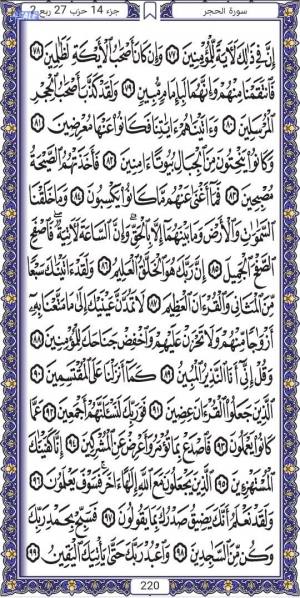 سورة الحجر
جزء 14 حزب 27 ربع 2
إِنَّ فِي ذَٰلِكَ لَأٓيَةً لِّلْمُؤْمِنِينَ ٧٧ وَإِن كَانَ أَصْحَٰبُ ٱلْأَيْكَةِ لَظَٰلِمِينَ ٧٨
فَٱنتَقَمْنَا مِنْهُمْ وَإِنَّهُمَا لَبِإِمَامٍ مُّبِينٍ ٧٩ وَلَقَدْ كَذَّبَ أَصْحَٰبُ ٱلْحِجْرِ
ٱلْمُرْسَلِينَ ٨٠ وَءَاتَيْنَٰهُمْ ءَايَٰتِنَا فَكَانُوا۟ عَنْهَا مُعْرِضِينَ ٨١
وَكَانُوا۟ يَنْحِتُونَ مِنَ ٱلْجِبَالِ بُيُوتًا ءَامِنِينَ ٨٢ فَأَخَذَتْهُمُ ٱلصَّيْحَةُ
مُصْبِحِينَ ٨٣ فَمَآ أَغْنَىٰ عَنْهُم مَّا كَانُوا۟ يَكْسِبُونَ ٨٤ وَمَا خَلَقْنَا
ٱلسَّمَٰوَٰتِ وَٱلْأَرْضَ وَمَا بَيْنَهُمَآ إِلَّا بِٱلْحَقِّ ۗ وَإِنَّ ٱلسَّاعَةَ لَأٓتِيَةٌ ۖ فَٱصْفَحِ
ٱلصَّفْحَ ٱلْجَمِيلَ ٨٥ إِنَّ رَبَّكَ هُوَ ٱلْخَلَّٰقُ ٱلْعَلِيمُ ٨٦ وَلَقَدْ ءَاتَيْنَٰكَ سَبْعًا
مِّنَ ٱلْمَثَانِي وَٱلْقُرْءَانَ ٱلْعَظِيمَ ٨٧ لَا تَمُدَّنَّ عَيْنَيْكَ إِلَىٰ مَا مَتَّعْنَا بِهِۦٓ
أَزْوَٰجًا مِّنْهُمْ وَلَا تَحْزَنْ عَلَيْهِمْ وَٱخْفِضْ جَنَاحَكَ لِلْمُؤْمِنِينَ ٨٨
وَقُلْ إِنِّيٓ أَنَا ٱلنَّذِيرُ ٱلْمُبِينُ ٨٩ كَمَآ أَنزَلْنَا عَلَى ٱلْمُقْتَسِمِينَ ٩٠
ٱلَّذِينَ جَعَلُوا۟ ٱلْقُرْءَانَ عِضِينَ ٩١ فَوَرَبِّكَ لَنَسْـَٔلَنَّهُمْ أَجْمَعِينَ ٩٢ عَمَّا
كَانُوا۟ يَعْمَلُونَ ٩٣ فَٱصْدَعْ بِمَا تُؤْمَرُ وَأَعْرِضْ عَنِ ٱلْمُشْرِكِينَ ٩٤ إِنَّا كَفَيْنَٰكَ
ٱلْمُسْتَهْزِءِينَ ٩٥ ٱلَّذِينَ يَجْعَلُونَ مَعَ ٱللَّهِ إِلَٰهًا ءَاخَرَ ۚ فَسَوْفَ يَعْلَمُونَ ٩٦
وَلَقَدْ نَعْلَمُ أَنَّكَ يَضِيقُ صَدْرُكَ بِمَا يَقُولُونَ ٩٧ فَسَبِّحْ بِحَمْدِ رَبِّكَ
وَكُن مِّنَ ٱلسَّٰجِدِينَ ٩٨ وَٱعْبُدْ رَبَّكَ حَتَّىٰ يَأْتِيَكَ ٱلْيَقِينُ ٩٩
220